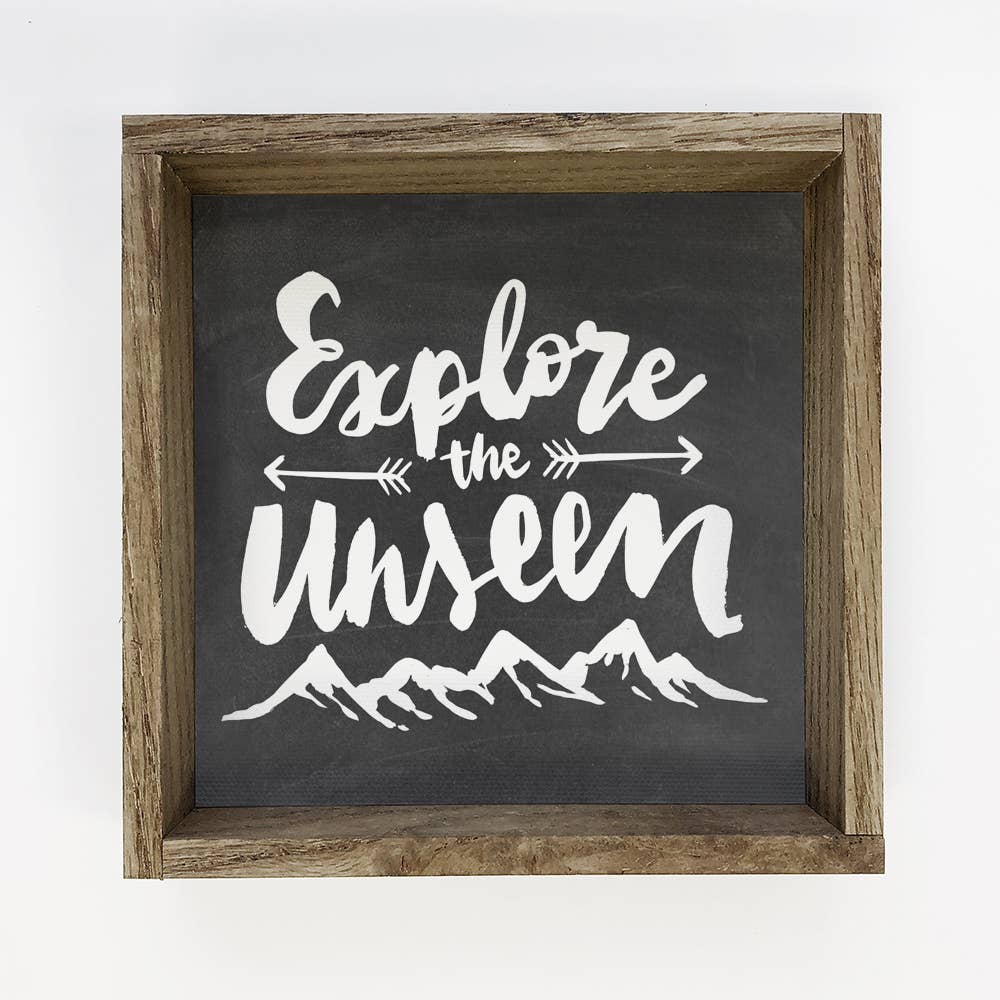 Explore
the
Unseen